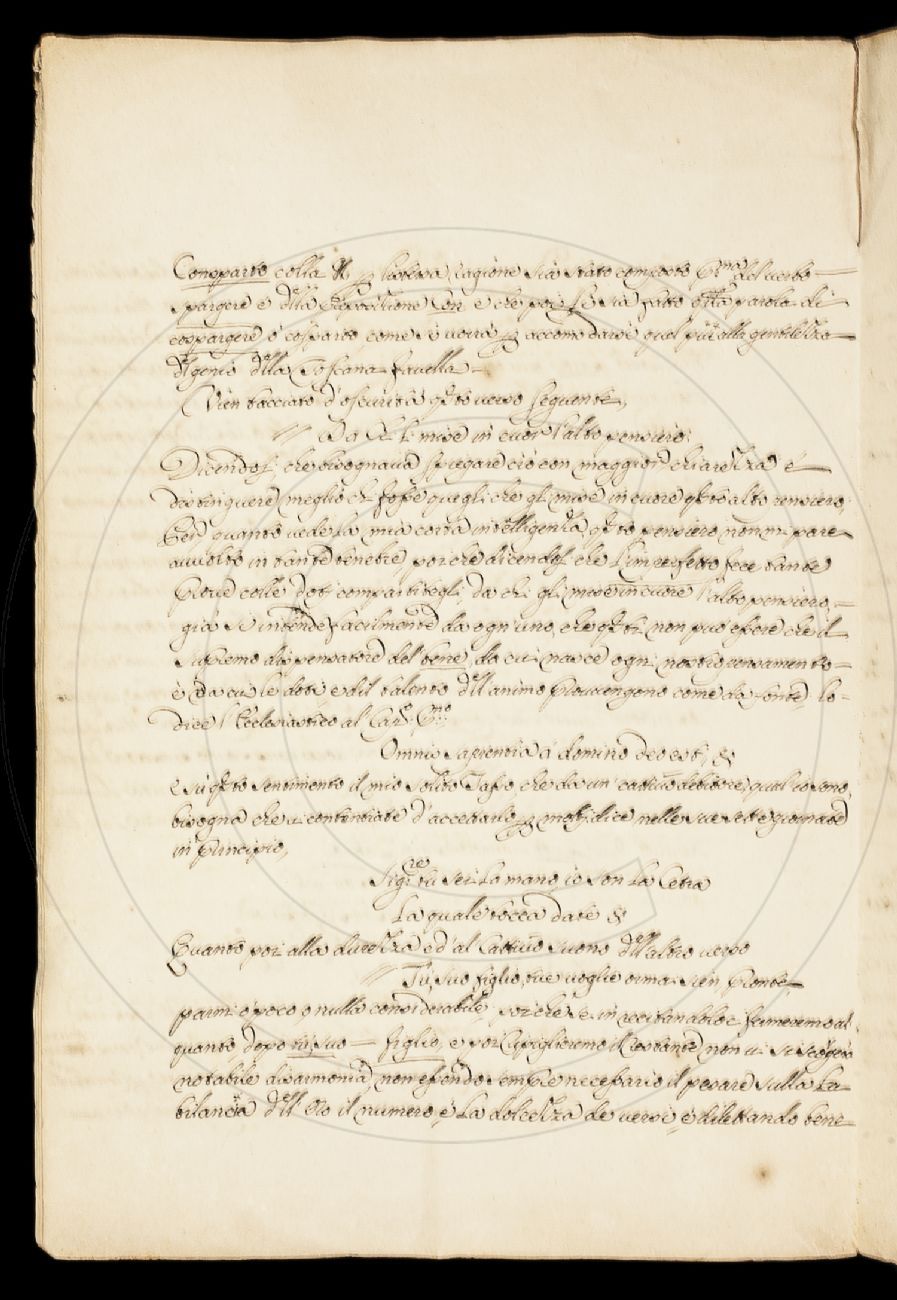 Consparto colla N, per l'istessa ragione sia stato composto Pmo del uerbo
spargere e della Preposittione Con e che poi se sia fatto otta parola di
cospargere ò cosparto come s'è uorrà per accomodarsi quel più alla gentilezza
del genio della Toscana fauella.
Vien tacciato d'oscurità qsto uerso seguente,
// Da chi li mise in cuor l'alto pensiero:
Dicendosi che bisognaua spiegare ciò con maggior chiarezza é
distinguere meglio chi fosse quegli che gli mise in cuore qsto alto pensiero;
Per quanto uede la mia corta intelligenza, qsto pensiero non mi pare
auuolto in tante tenebre, poiche dicendosi che l'imperfetto fece tante
Proue colle doti compartitegli, da chi gli mise in cuore l'alto pensiero,
già si intende facilmente da ogn'uno, che qsti non può essere che il
supremo dispensatore del bene, da cui nasce ogni nostro pensamento
é da cui le doti, ed il talento dell'animo prouengono come da fonte, lo
dice l'Ecclesiastico al Capo: Pmo:
Omnis sapientia à domino deo est, &
e sù qsto sentimento il mio solito Tasso che da un cattiuo debitore, qual io sono,
bisogna che ui contentiate d'accettarlo per molti, dice nelle sue sette giornate
in principio,
Sigre tu sei la mano, io son la Cetra
La quale tocca da te &
Quanto poi alla durezza ed'al Cattiuo suono dell'altro uerso
// Tù, suo figlio, tue uoglie ormai sien pronte,
parmi ò poco, ò nulla considerabile, poi che se in recitandolo ci fermeremo al
quanto dopo tù, suo — figlio, e poi ripiglieremo il restante, non ui si scorgerà
notabile disarmonia, non essendo sempre necessario il pesare sulla La
bilancia dell'Oro il numero é La dolcezza de uersi é dilettando bene